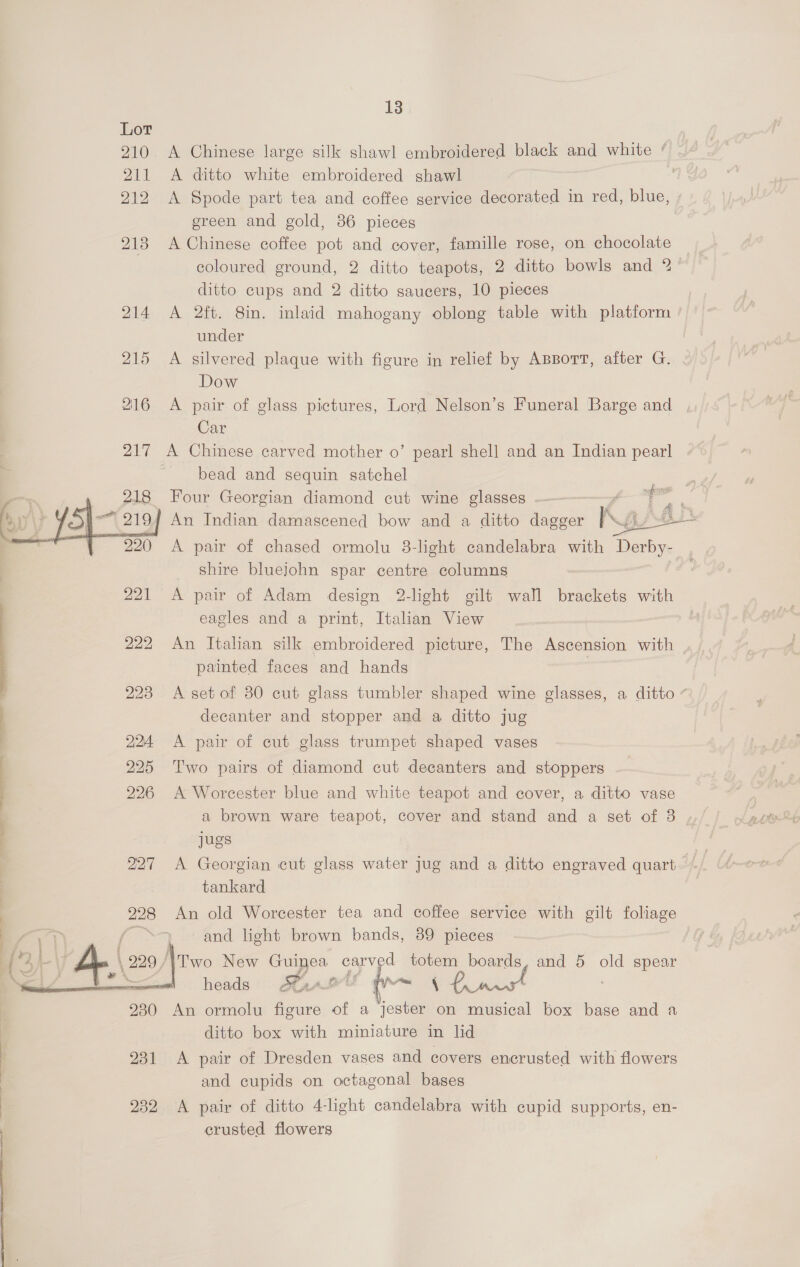 13
Lot
210 A Chinese large silk shawl embroidered black and white
211 A ditto white embroidered shawl
212 A Spode part tea and coffee service decorated in red, blue,
green and gold, 36 pieces
213 A Chinese coffee pot and cover, famille rose, on chocolate
coloured ground, 2 ditto teapots, 2 ditto bowls and 2
ditto cups and 2 ditto saucers, 10 pieces
214 A 2ft. 8in. inlaid mahogany oblong table with platform
under
215 A silvered plaque with figure in relief by Abbott, after G.
Dow
216 A pair of glass pictures, Lord Nelson's Funeral Barge and
Car
217 A Chinese carved mother o' pearl shell and an Indian pearl
bead and sequin satchel
218 Four Georgian diamond cut wine glasses
219 An Indian damascened bow and a ditto dagger
220 A pair of chased ormolu 3-light candelabra with Derby-
shire bluejohn spar centre columns
221 A pair of Adam design 2-light gilt wall brackets with
eagles and a print, Italian View
222 An Italian silk embroidered picture, The Ascension with
painted faces and hands
223 A set of 30 cut glass tumbler shaped wine glasses, a ditto
decanter and stopper and a ditto jug
224 A pair of cut glass trumpet shaped vases
225 Two pairs of diamond cut decanters and stoppers
226 A Worcester blue and white teapot and cover, a ditto vase
a brown ware teapot, cover and stand and a set of 3
jugs
227 A Georgian cut glass water jug and a ditto engraved quart
tankard
228 An old Worcester tea and coffee service with gilt foliage
and light brown bands, 39 pieces
229 Two New Guinea carved totem boards, and 5 old spear
heads
230 An ormolu figure of a jester on musical box base and a
ditto box with miniature in lid
231 A pair of Dresden vases and covers encrusted with flowers
and cupids on octagonal bases
232 A pair of ditto 4-light candelabra with cupid supports, en-
crusted flowers